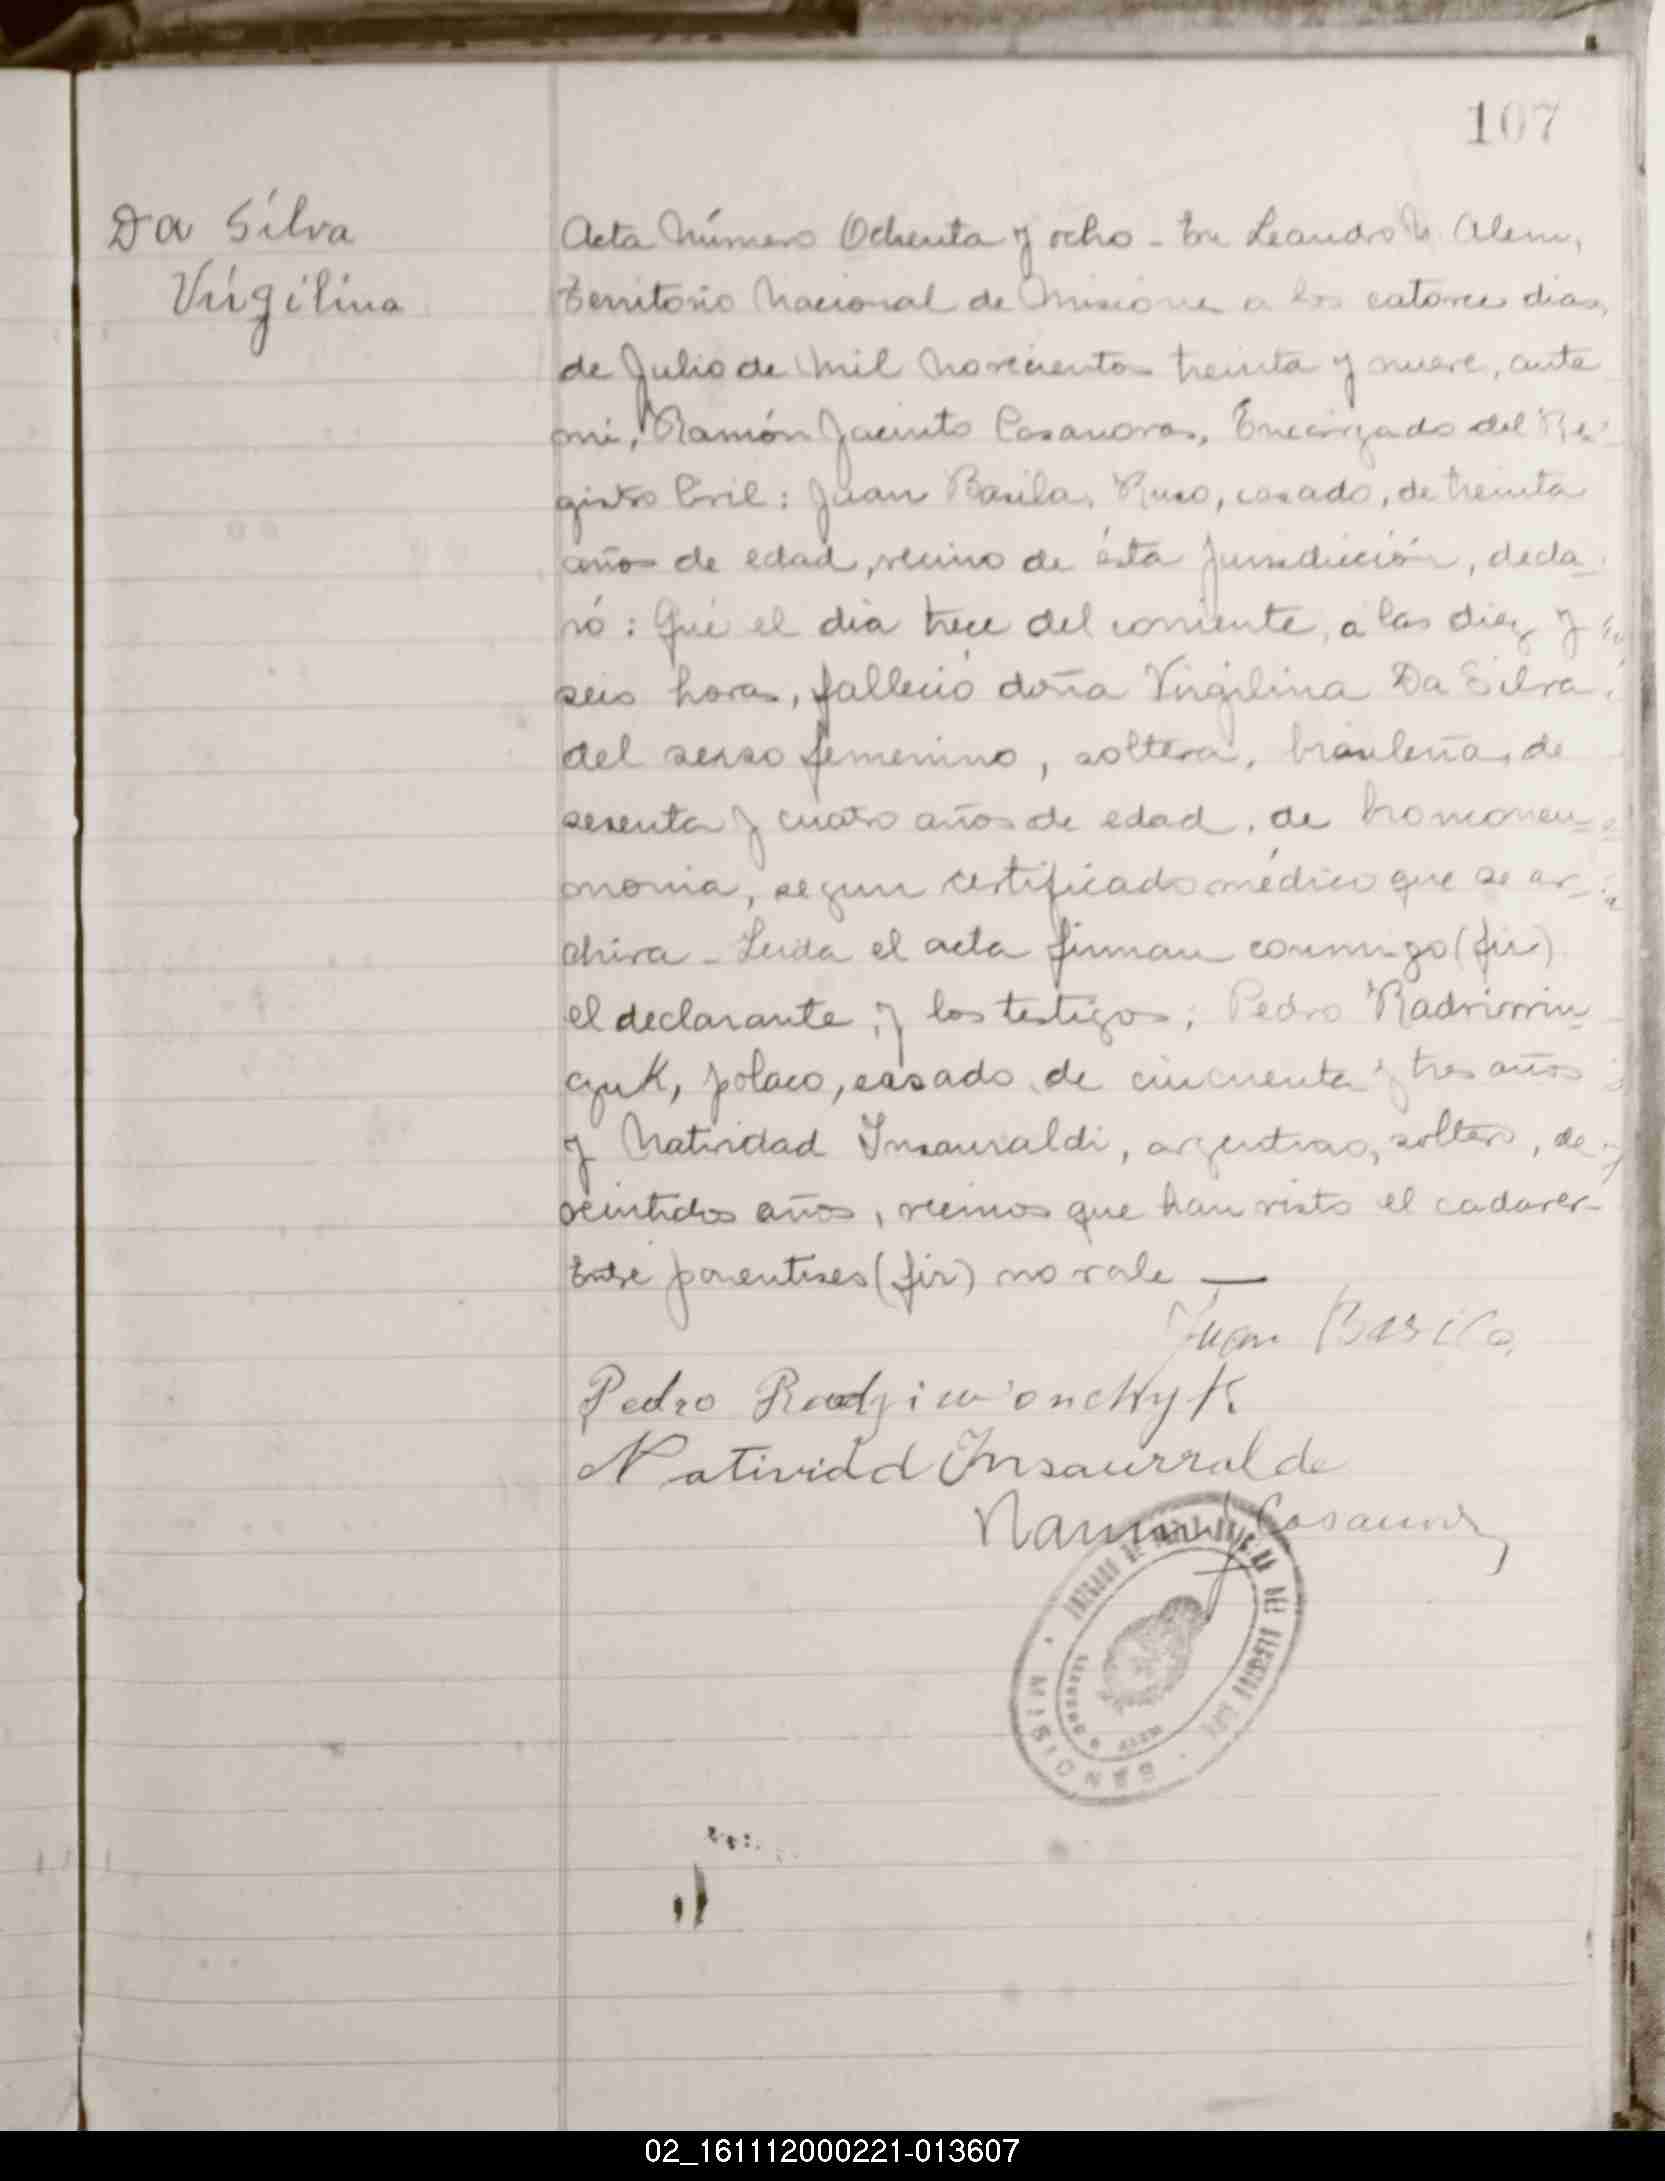 107
Da Silva
Virgilina
Acta Número Ochenta y ocho - En Leandro N. Alem,
Territorio Nacional de Misiones a los catorce dias,
de Julio de mil novecientos treinta y nueve, ante
mi, Ramón Jacinto Casanovas, Encargado del Re-
gistro Civil: Juan Basila, Ruso, casado, de treinta
años de edad, vecino de ésta jurisdicción, decla-
ró: Que el dia trece del corriente, a las diez y
seis horas, falleció doña Virgilina Da Silva,
del sexso femenino, soltera, brasileña, de
sesenta y cuatro años de edad, de bronconeu-
monia, segun certificado médico que se ar-
chiva - Leida el acta firman conmigo (fir)
el declarante, y los testigos; Pedro Radrivonin-
czuk, polaco, casado, de cincuenta y tres años
y Natividad Insauraldi, argentino, soltero, de
veintidos años, vecinos que han visto el cadaver-
Entre parentises (fir) no vale —
Juan Basila
Pedro Radziwonchyk
Natividad Insaurralde
Ramón J Casanovas
ENCARGADO DEL REGISTRO CIVIL
MISIONES
02_161112000221-013607